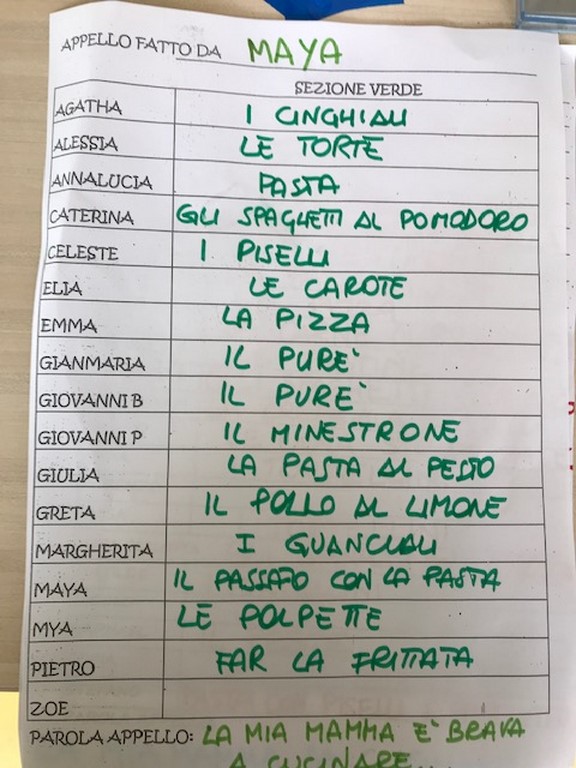 APPELLO FATTO DA MAYA
SEZIONE VERDE
AGATHA I CINGHIALI
ALESSIA LE TORTE
ANNALUCIA PASTA
CATERINA GLI SPAGHETTI AL POMODORO
CELESTE I PISELLI
ELIA LE CAROTE
EMMA LA PIZZA
GIANMARIA IL PURE'
GIOVANNI B IL PURE'
GIOVANNI P IL MINESTRONE
GIULIA LA PASTA AL PESTO
GRETA IL POLLO AL LIMONE
MARGHERITA I GUANCIALI
MAYA IL PASSATO CON LA PASTA
MYA LE POLPETTE
PIETRO FAR LA FRITTATA
ZOE
PAROLA APPELLO: LA MIA MAMMA E' BRAVA
A CUCINARE...